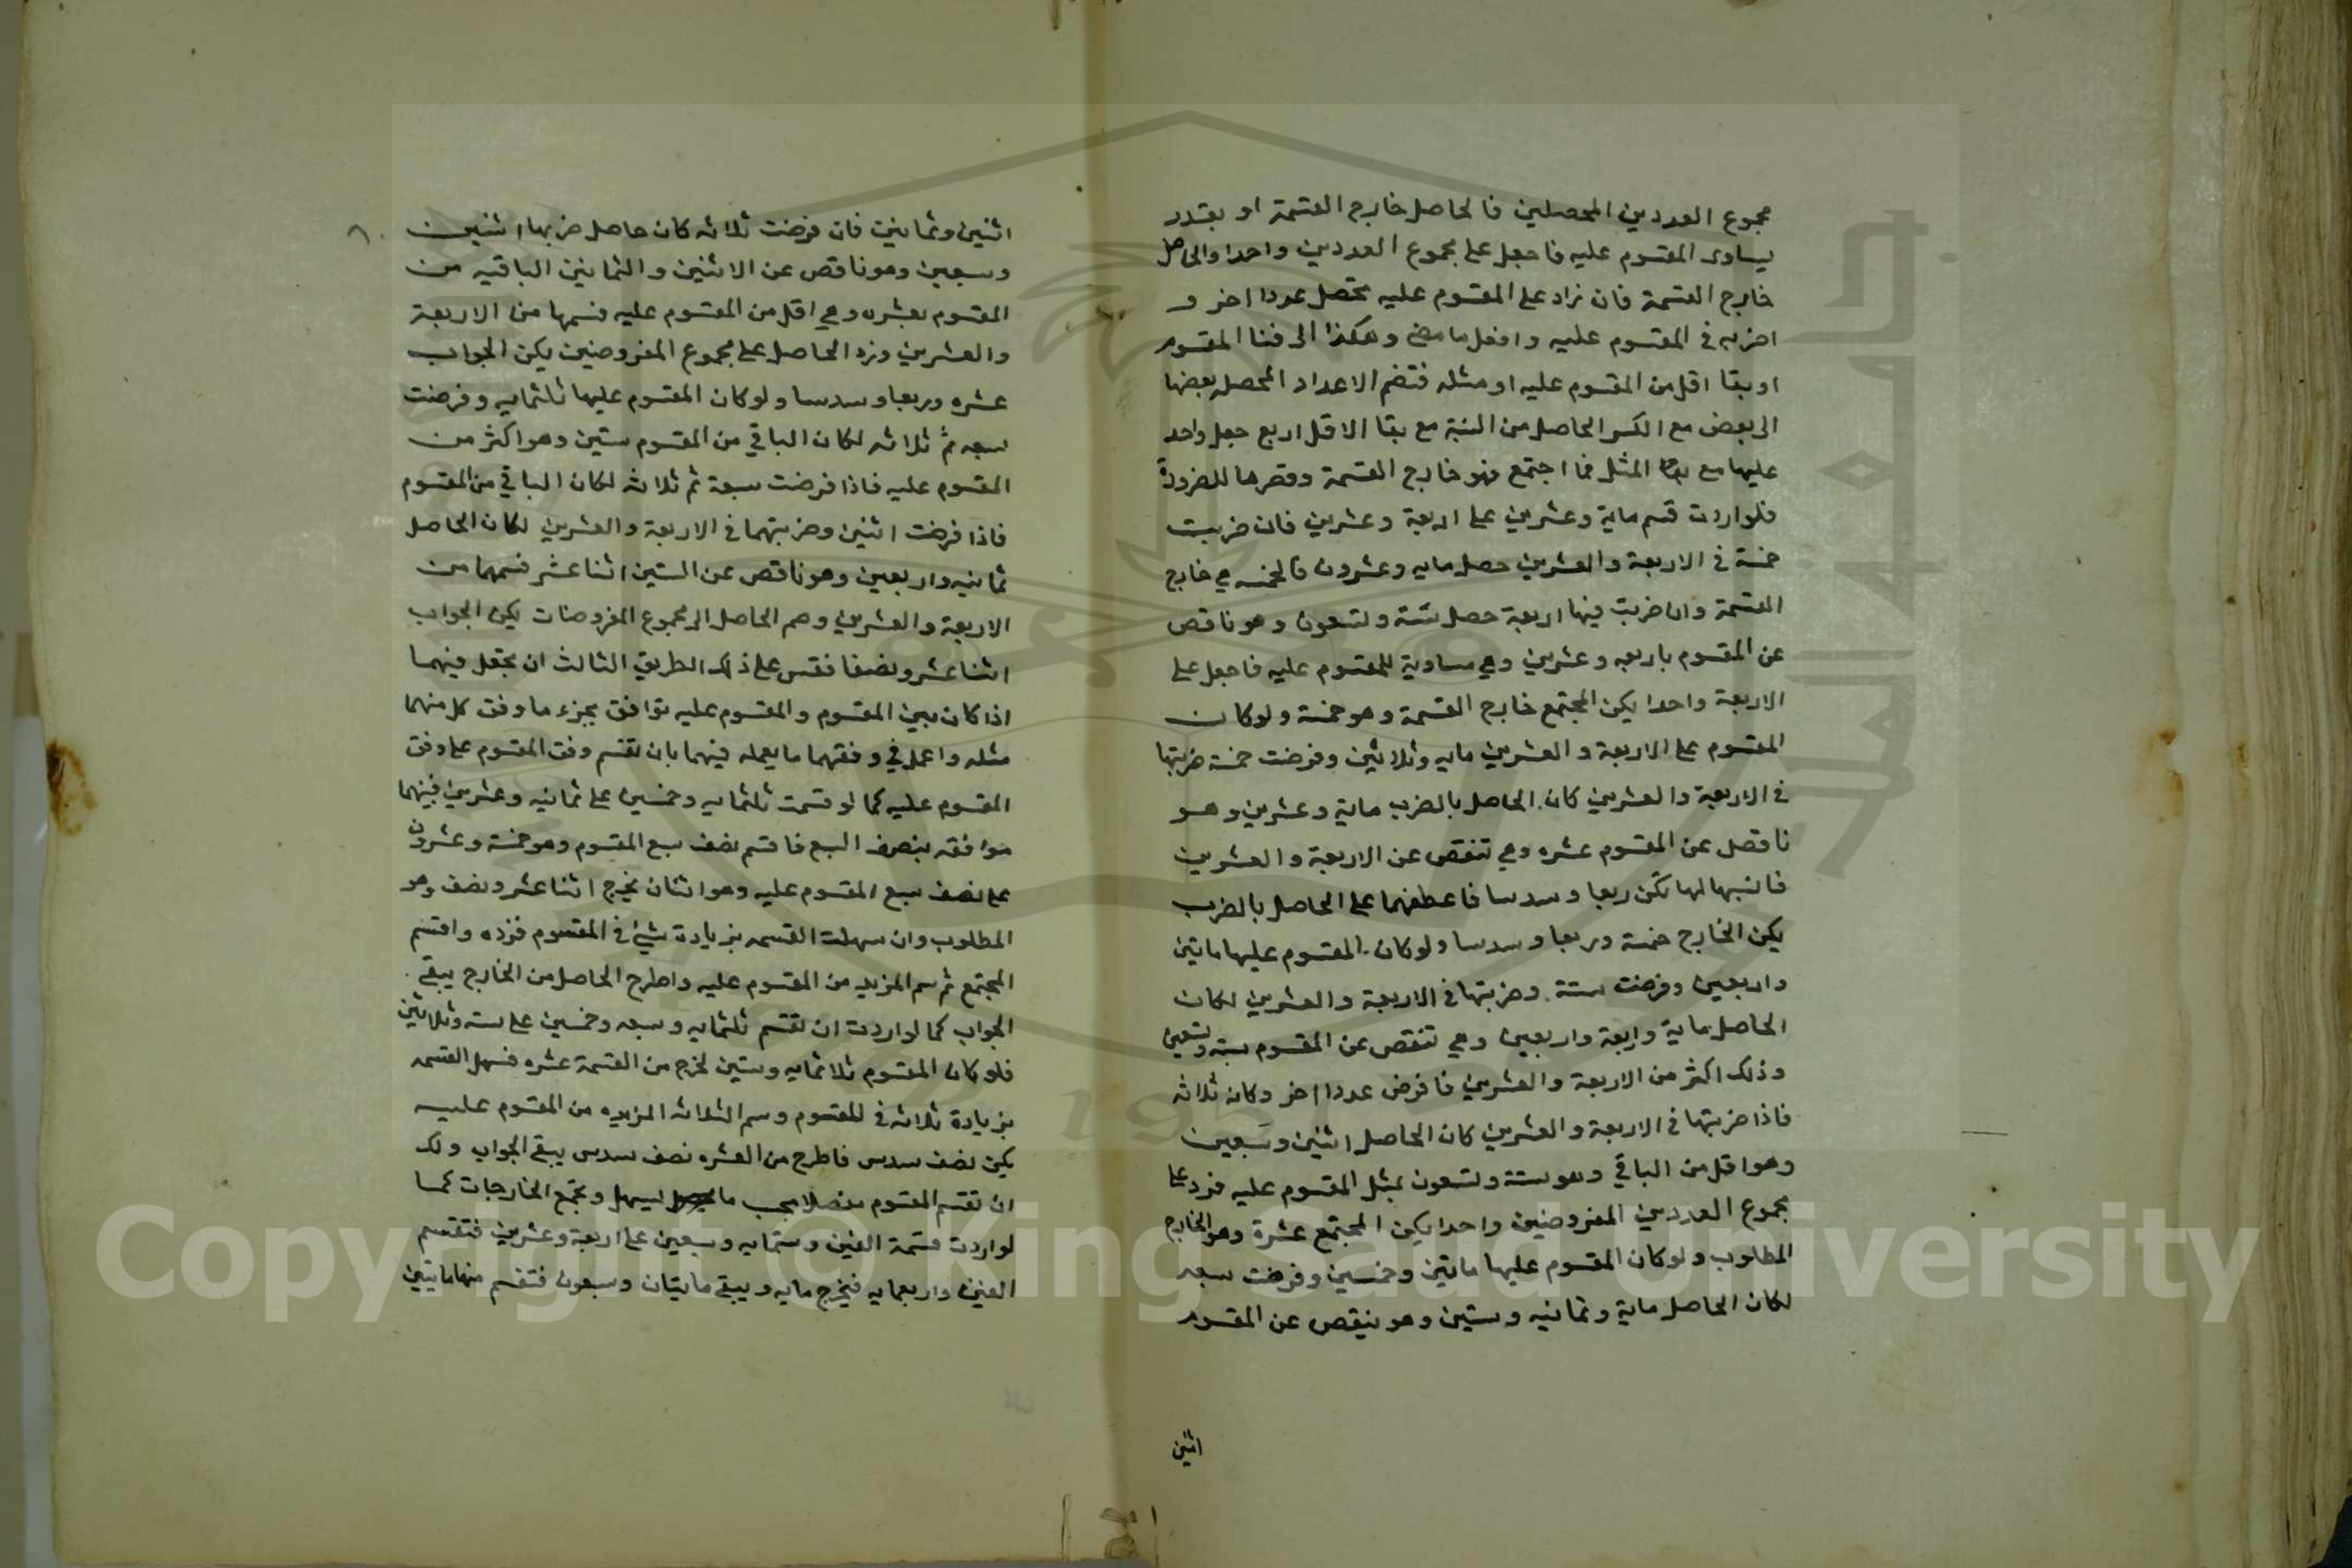 مجموع العددين المحصلين فالحاصل خارج القسمة او بقدر
يساوى المقسوم عليه فاجعل على مجموع العددين واحدا والحاصل
خارج القسمة فان زاد على المقسوم عليه تحصل عددا اخر و
اضربه في المقسوم عليه وافعل ما مضى وهكذا الى فنا المقسوم
او بقا اقل من المقسوم عليه او مثله فتضم الاعداد المحصله بعضها
الى بعض مع الكسر الحاصل من النسبة مع بقا الاقل اربع جعل واحد
عليها مع بقا المثل فما اجتمع فهو خارج القسمة وقصرها للضرورة
فلو اردت قسم ماية وعشرين على اربعة وعشرين فان ضربت
خمسة في الاربعة والعشرين حصل مايه وعشرون فالخمسه هي خارج
القسمة وان ضربت فيها اربعة حصل ستة وتسعون وهو ناقص
عن المقسوم باربعه وعشرين وهي مساوية للمقسوم عليه فاجعل على
الاربعة واحدا يكن المجتمع خارج القسمة وهو خمسة ولو كان
المقسوم على الاربعة والعشرين مايه وثلاثين وفرضت خمسة ضربتها
في الاربعة والعشرين كان الحاصل بالضرب ماية وعشرين وهو
ناقصل عن المقسوم عشره وهي تنقص عن الاربعة والعشرين
فانسبها لها تكن ربعا وسدسا فاعطفهما على الحاصل بالضرب
يكن الخارج خمسة وربعا وسدسا ولو كان المقسوم عليها ماتين
واربعين وفرضت ستة وضربتها في الاربعة والعشرين لكان
الحاصل ماية واربعة واربعين وهي تنقص عن المقسوم ستة وتسعين
وذلك اكثر من الاربعة والعشرين فافرض عددا اخر وكان ثلاثه
فاذا ضربتها في الاربعة والعشرين كان الحاصل اثنين وسبعين
وهو اقل من الباقي وهو ستة وتسعون بمثل المقسوم عليه فزد على
مجموع العددين المفروضين واحدا يكن المجتمع عشرة وهو الخارج
المطلوب ولو كان المقسوم عليها ماتين وخمسين وفرضت سبعه
لكان الحاصل ماية وثمانيه وستين وهو ينقص عن المقسوم
اثنين
اثنين وثمانين فان فرضت ثلاثه كان حاصل ضربها اثنين
وسبعين وهو ناقص عن الاثنين والثمانين الباقيه من
المقسوم بعشره وهي اقل من المقسوم عليه فسمها من الاربعة
والعشرين وزد الحاصل على مجموع المفروضين يكن الجواب
عشره وربعا وسدسا ولو كان المقسوم عليها ثلثمايه وفرضت
سبعه ثم ثلاثه لكان الباقي من المقسوم ستين وهو اكثر من
المقسوم عليه فاذا فرضت سبعة ثم ثلاثه لكان الباقي من المقسوم
فاذا فرضت اثنين وضربتهما في الاربعة والعشرين لكان الحاصل
ثمانيه واربعين وهو ناقص عن الستين اثنا عشر فسمهما من
الاربعة والعشرين وضم الحاصل الى مجموع المفروضات يكن الجواب
اثنا عشر ونصفا فقس على ذلك الطريق الثالث ان تجعل فيهما
اذا كان بين المقسوم والمقسوم عليه توافق بجزء ما وفق كل منهما
مثله واعمل في وفقهما ما يعمله فيهما بان تقسم وفق المقسوم على وفق
المقسوم عليه كما لو قسمت ثلثمايه وخمسين على ثمانيه وعشرين فبينهما
موافقه بنصف السبع فاقسم نصف سبع المقسوم وهو خمسة وعشرون
على نصف سبع المقسوم عليه وهو اثنان يخرج اثنا عشر ونصف وهو
المطلوب وان سهلت القسمه بزيادة شيئ في المقسوم فزده واقسم
المجتمع ثم سم المزيد من المقسوم عليه واطرح الحاصل من الخارج يبقى
الجواب كما لو اردت ان تقسم ثلثمايه وسبعه وخمسين على سته وثلاثين
فلو كان المقسوم ثلاثمايه وستين لخرج من القسمة عشره فسهل القسمه
بزيادة ثلاثه في المقسوم وسم الثلاثه المزيده من المقسوم عليه
يكن نصف سدس فاطرح من العشره نصف سدس يبقى الجواب ولك
ان تقسم المقسوم مفصلا بحسب ما يسهل وتجمع الخارجات كما
لو اردت قسمة الفين وستمايه وسبعين على اربعة وعشرين فتقسم
الفين واربعمايه فيخرج مايه ويبقى مايتان وسبعون فتقسم منها مايتين
Copyright © King Saud University